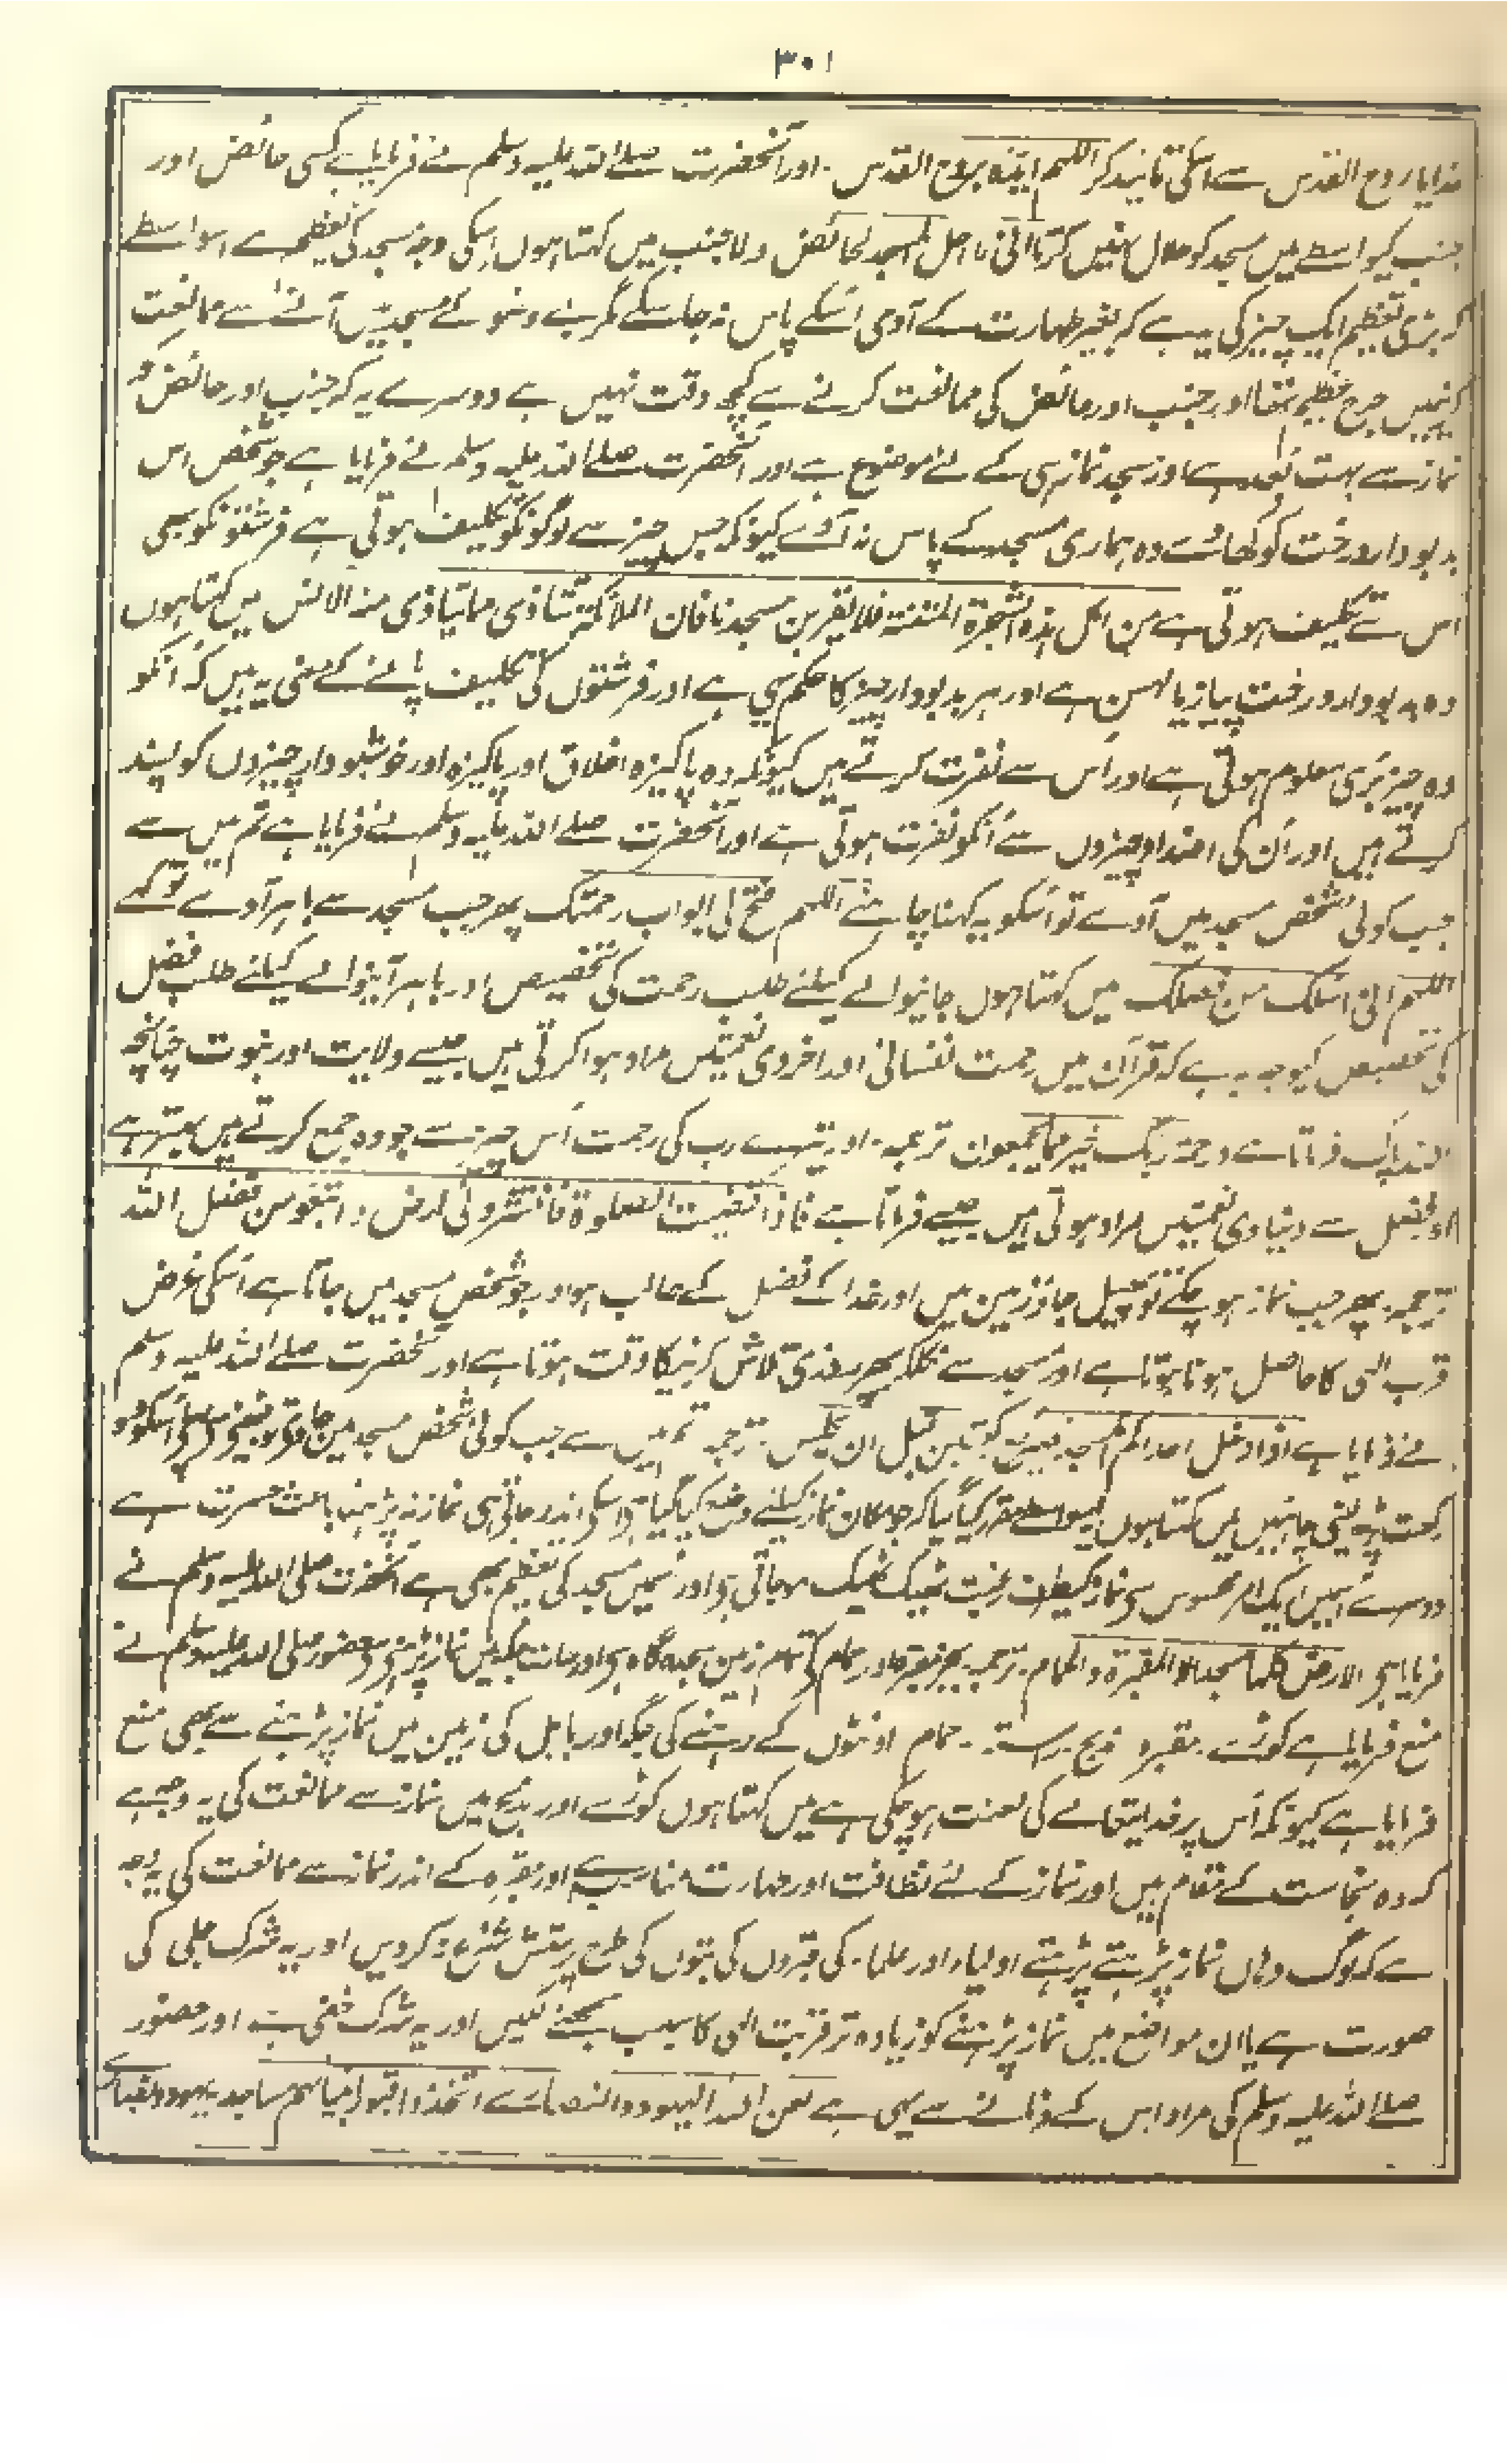 ۳۰۱
خدایا روح القدس سے اسکی تائید کر اللہم ایدہ بروح القدس ۔ اور آنحضرت صلے اللہ علیہ وسلم نے فرمایا ہے کسی حائض اور
جنب کیواسطے میں مسجد کو حلال نہیں کرتا انی لا احل المسجد لحائض ولا جنب میں کہتا ہوں اسکی وجہ مسجد کی تعظیم ہے اسواسطے
کہ بڑی تعظیم ایک چیز کی یہ ہے کہ بغیر طہارت کے آدمی اسکے پاس نہ جاسکے مگر بے وضو کے مسجد میں آنے سے ممانعت
کرنیمیں حرج عظیم تھا اور جنب اور حائض کی ممانعت کرنے سے کچھ دقت نہیں ہے دوسرے یہ کہ جنب اور حائض کو
نماز سے بہت بُعد ہے اور مسجد نماز ہی کے لئے موضوع ہے اور آنحضرت صلے اللہ علیہ وسلم نے فرمایا ہے جو شخص اس
بدبودار درخت کو کھائے وہ ہماری مسجد کے پاس نہ آوے کیونکہ جس چیز سے لوگونکو تکلیف ہوتی ہے فرشتونکو بھی
اس سے تکلیف ہوتی ہے من اکل ہذہ الشجرۃ المنتنۃ فلا یقربن مسجدنا فان الملائکۃ تتاذی مما یتاذی منہ الانس میں کہتا ہوں
وہ بدبودار درخت پیاز یا لہسن ہے اور ہر بدبودار چیز کا حکم یہی ہے اور فرشتوں کی تکلیف پانے کے معنی یہ ہیں کہ انکو
وہ چیز بُری معلوم ہوتی ہے اور اُس سے نفرت کرتے ہیں کیونکہ وہ پاکیزہ اخلاق اور پاکیزہ اور خوشبودار چیزوں کو پسند
کرتے ہیں اور اُن کی اضداد چیزوں سے اُنکو نفرت ہوتی ہے اور آنحضرت صلے اللہ علیہ وسلم نے فرمایا ہے تم میں سے
جب کوئی شخص مسجد میں آوے تو اُسکو یہ کہنا چاہئے اللہم افتح لی ابواب رحمتک پھر جب مسجد سے باہر آوے تو کہے
اللہم انی اسئلک من فضلک میں کہتا ہوں جانیوالے کیلئے طلب رحمت کی تخصیص اور باہر آنیوالے کیلئے طلب فضل
کی تخصیص کیوجہ یہ ہے کہ قرآن میں رحمت نفسانی اور اخروی نعمتیں مراد ہوا کرتی ہیں جیسے ولایت اور نبوت چنانچہ
اللہ پاک فرماتا ہے ورحمۃ ربک خیر مما یجمعون ترجمہ ۔ اور تیرے رب کی رحمت اُس چیز سے جو وہ جمع کرتے ہیں بہتر ہے
اور فضل سے دنیاوی نعمتیں مراد ہوتی ہیں جیسے فرماتا ہے فاذا قضیت الصلوۃ فانتشروا فی الارض وابتغوا من فضل اللہ
ترجمہ ۔ پھر جب نماز ہو چکے تو پھیل جاؤ زمین میں اور خدا کے فضل کے طالب ہو اور جو شخص مسجد میں جاتا ہے اسکی غرض
قرب الہی کا حاصل ہونا ہوتا ہے اور مسجد سے نکلکر پھر روزی تلاش کرنیکا وقت ہوتا ہے اور آنحضرت صلے اللہ علیہ وسلم
نے فرمایا ہے اذا دخل احدکم المسجد فلیرکع رکعتین قبل ان یجلس ۔ ترجمہ تم میں سے جب کوئی شخص مسجد میں جاوے تو بیٹھنے سے پہلے اسکو دو
رکعت پڑھ لینی چاہئیں میں کہتا ہوں یہ اسواسطے مقرر کیا گیا کہ جو مکان نماز کیلئے وضع کیا گیا ہو اسکے اندر جاتے ہی نماز نہ پڑھنا باعث حسرت ہے
دوسرے اسمیں ایک امر محسوس سے نماز کیطرف رغبت ٹھیک ٹھیک ہو جاتی ہے اور نیز اسمیں مسجد کی تعظیم بھی ہے آنحضرت صلی اللہ علیہ وسلم نے
فرمایا ہے الارض کلہا مسجد الا المقبرۃ والحمام ۔ ترجمہ بجز مقبرہ اور حمام کے تمام زمین سجدہ گاہ ہے اور سات جگہ میں نماز پڑھنے سے حضور صلی اللہ علیہ وسلم نے
منع فرمایا ہے کوڑے ۔ مقبرہ ۔ مذبح ۔ راستہ ۔ حمام اونٹوں کے رہنے کی جگہ اور بابل کی زمین میں نماز پڑہنے سے بھی منع
فرمایا ہے کیونکہ اُس پر خدایتعالے کی لعنت ہو چکی ہے میں کہتا ہوں کوڑے اور مذبح میں نماز سے ممانعت کی یہ وجہ ہے
کہ وہ نجاست کے مقام ہیں اور نماز کے لئے نظافت اور طہارت مناسب ہے اور مقبرہ کے اندر نماز سے ممانعت کی یہ وجہ
ہے کہ لوگ وہاں نماز پڑہتے پڑہتے اولیاء اور علماء کی قبروں کی بتوں کی طرح پرستش شروع نہ کردیں اور یہ شرک جلی کی
صورت ہے یا ان مواضع میں نماز پڑہنے کو زیادہ تر قربت الہی کا سبب سمجھنے لگیں اور یہ شرک خفی ہے اور حضور
صلے اللہ علیہ وسلم کی مراد اس کے فرمانے سے یہی ہے لعن اللہ الیہود والنصارے اتخذوا قبور انبیائہم مساجد یہود و نصاریٰ